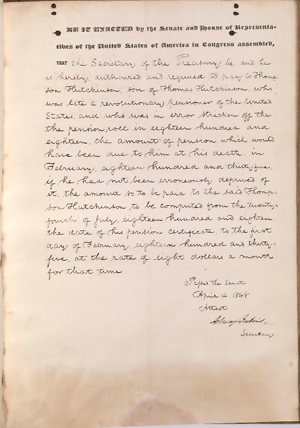 BE IT ENACTED by the Senate and House of Representa-
tives of the United States of America in Congress assembled,
THAT the Secretary of the Treasury be and he
is hereby, authorized and required to pay to Thomp-
son Hutchinson, son of Thomas Hutchinson, who
was late a revolutionary pensioner of the United
States and who was in error stricken off the
the pension roll in eighteen hundred and
eighteen, the amount of pension which would
have been due to him at his death, in
February, eighteen hundred and thirty five,
if he had not been erroneously deprived of
it, the amount so to be paid to the said Thomp-
son Hutchinson to be computed from the twenty-
fourth of July, eighteen hundred and eighteen
the date of his pension certificate to the first
day of February, eighteen hundred and thirty-
five, at the rate of eight dollars a month
for that time.
Passed the Senate
April 4 1848
Attest
Secretary